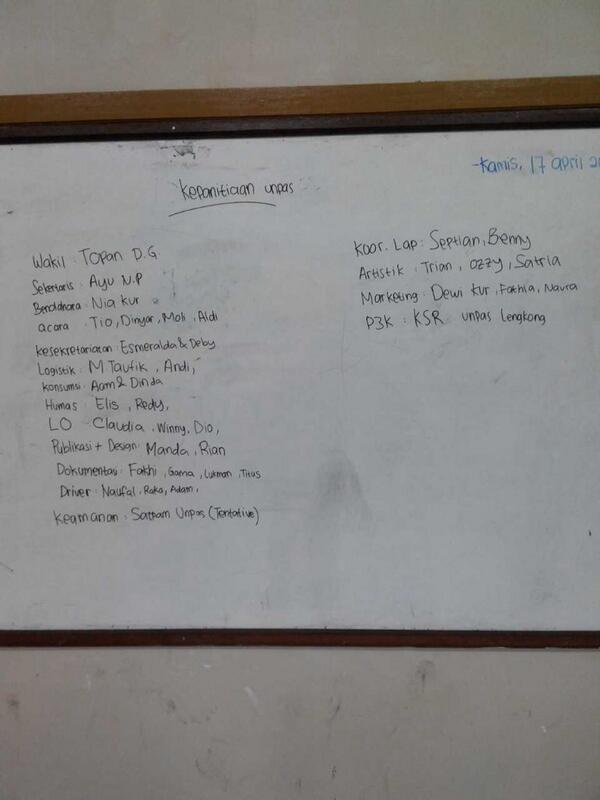 -Kamis, 17 april
Kepanitiaan unpas
Wakil : Topan D.G.
Sekertaris : Ayu N.P
Bendahara : Nia Kur
acara : Tio, Dinyar, Moli, Aldi
kesekretariatan : Esmeralda & Deby
Logistik : M Taufik, Andi,
konsumsi : Aam & Dinda
Humas : Elis, Redy,
LO : Claudia, Winny, Dio,
Publikasi + Design : Manda, Rian
Dokumentasi : Fakhi, Gama, Lukman, Titus
Driver : Naufal, Raka, Adam,
Keamanan : Satpam Unpas (Tentative)
Koor. Lap : Septian, Benny
Artistik : Trian, Ozzy, Satria
Marketing : Dewi Kur, Fathia, Naura
P3K : KSR unpas Lengkong